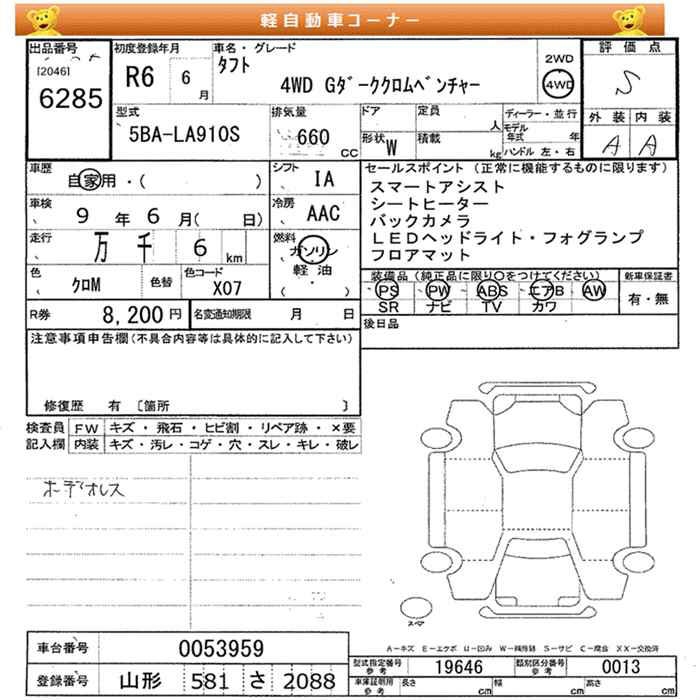 軽自動車コーナー
出品番号 初度登録年月 車名・グレード 2WD 評価点
[2046] タフト
6285 R6 6月 4WD Gダーククロムベンチャー 4WD S
型式 排気量 ドア 定員 人 ディーラー・並行 外装 内装
5BA-LA910S 660 cc 形状 W 積載 kg モデル年式 年 A A
ハンドル 左・右
車歴 自家用・( ) シフト IA セールスポイント (正常に機能するものに限ります)
スマートアシスト
車検 9年 6月( 日) 冷房 AAC シートヒーター
バックカメラ
走行 万 千 6 km 燃料 ガソリン LEDヘッドライト・フォグランプ
軽油 フロアマット
( ・ )
色 クロM 色替 色コード X07 装備品 (純正品に限り○をつけてください) 新車保証書
PS PW ABS エアB AW 有・無
R券 8,200円 名変通知期限 月 日 SR ナビ TV カワ
注意事項申告欄(不具合内容等は具体的に記入して下さい) 後日品
修復歴 有 [箇所 ]
検査員 FW キズ・飛石・ヒビ割・リペア跡・×要
記入欄 内装 キズ・汚レ・コゲ・穴・スレ・キレ・破レ
ホディオレス
スペア
A-キズ E-エクボ U-凹み W-補修跡 S-サビ C-腐食 XX-交換済
車台番号 0053959
型式指定番号 参考 19646 類別区分番号 参考 0013
登録番号 山形 581 さ 2088 車庫証明用 参考 長さ cm 幅 cm 高さ cm